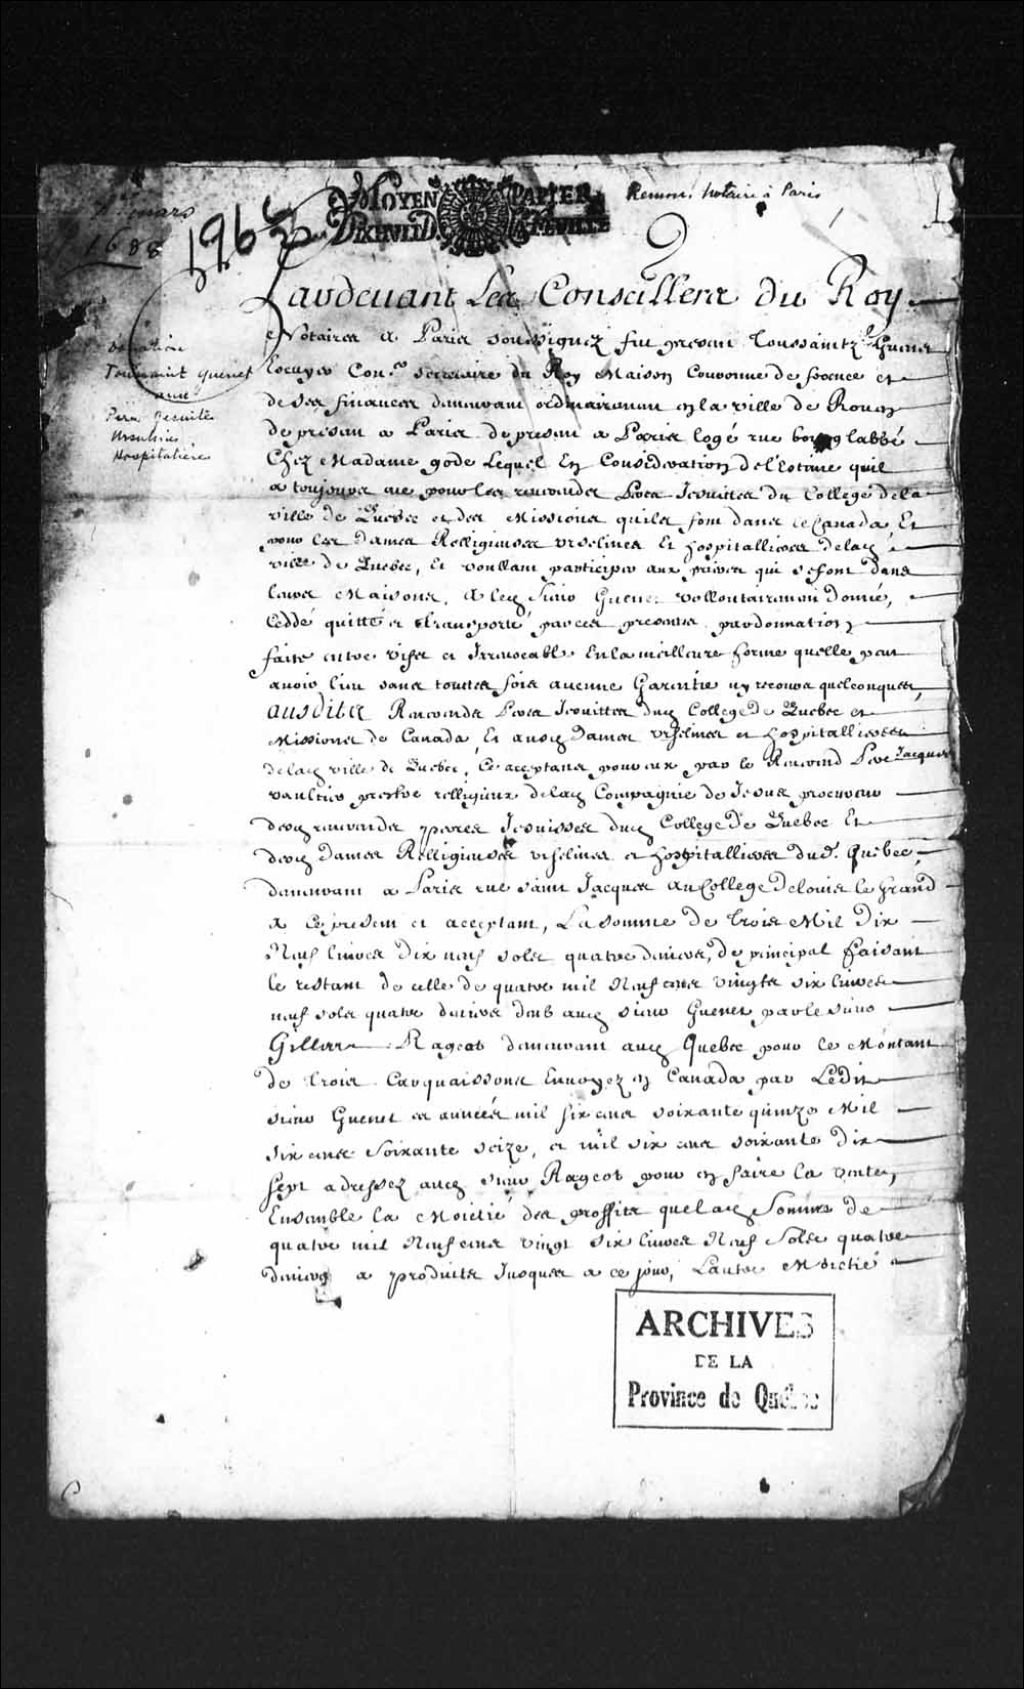 Remon, Notaire à Paris
mars
1688
1962
MOYEN PAPIER
Donation
Toussaint Guenet
aux
Pères Jesuite
Ursulines
Hospitalières
Pardevant Les Conseillers du Roy
Notaires a Paris soussignez fut present Toussaintz Guenet
Escuyer Con.er Secretaire du Roy Maison Couronne de france et
de ses finances demeurant ordinairement en la ville de Rouen
de present a Paris de present a Paris logé rue bourg labbé
Chez Madame gode Lequel En Consideration de l'Estime quil
a toujours eue pour les reverendes Peres Jesuittes du College de la
ville de Quebec et des Missions quils font dans le Canada Et
pour les dames Relligieuses urselines Et hospitallieres de lad.
ville de Quebec, Et voullant participer aux prieres qui se font dans
leurs Maisons, a led. Sieur Guenet vollontairement donné,
Ceddé quitté et transporté par ces presentes par donnation
faite entre vifs et Irrevocable En la meilleure forme quelle peut
avoir lieu sans touttes fois aucune Garentie ny recours quelconques,
ausdits Reverends Peres Jesuittes dud. College De Quebec et
Missions de Canada, Et ausd. Dames urselines et hospitallieres
de lad. ville de Quebec, Ce acceptans pour eux par le Reverend Pere Jacques
vaultier prestre relligieux de lad. Compagnie de Jesus procureur
desd. reverendes peres Jesuisses dud. College De Quebec Et
desd. Dames Relligieuses urselines et hospitallieres dud. Quebec,
demeurant a Paris rue saint Jacques au College De louis le Grand
a Ce present et acceptant, La somme de trois Mil Dix
Neuf livres dix neuf sols quatre deniers, de principal faisant
le restant de celle de quatre mil Neuf cens vingts six livres
neuf sols quatre deniers deub aud. sieur Guenet par le sieur
Gilles Rageot demeurant aud. Quebec pour le Montant
de trois Carquaissons Envoyez en Canada par Ledit
sieur Guenet es années mil six cens soixante quinze Mil
six cens Soixante seize, et mil six cens soixante dix
sept adressez aud. sieur Rageot pour en faire la vente,
Ensemble la Moictié des proffits que lad. Somme de
quatre mil Neuf cens vingt six livres Neuf Sols quatre
deniers a produits Jusques a ce jour, L'autre Moictié
ARCHIVES
DE LA
Province de Québec